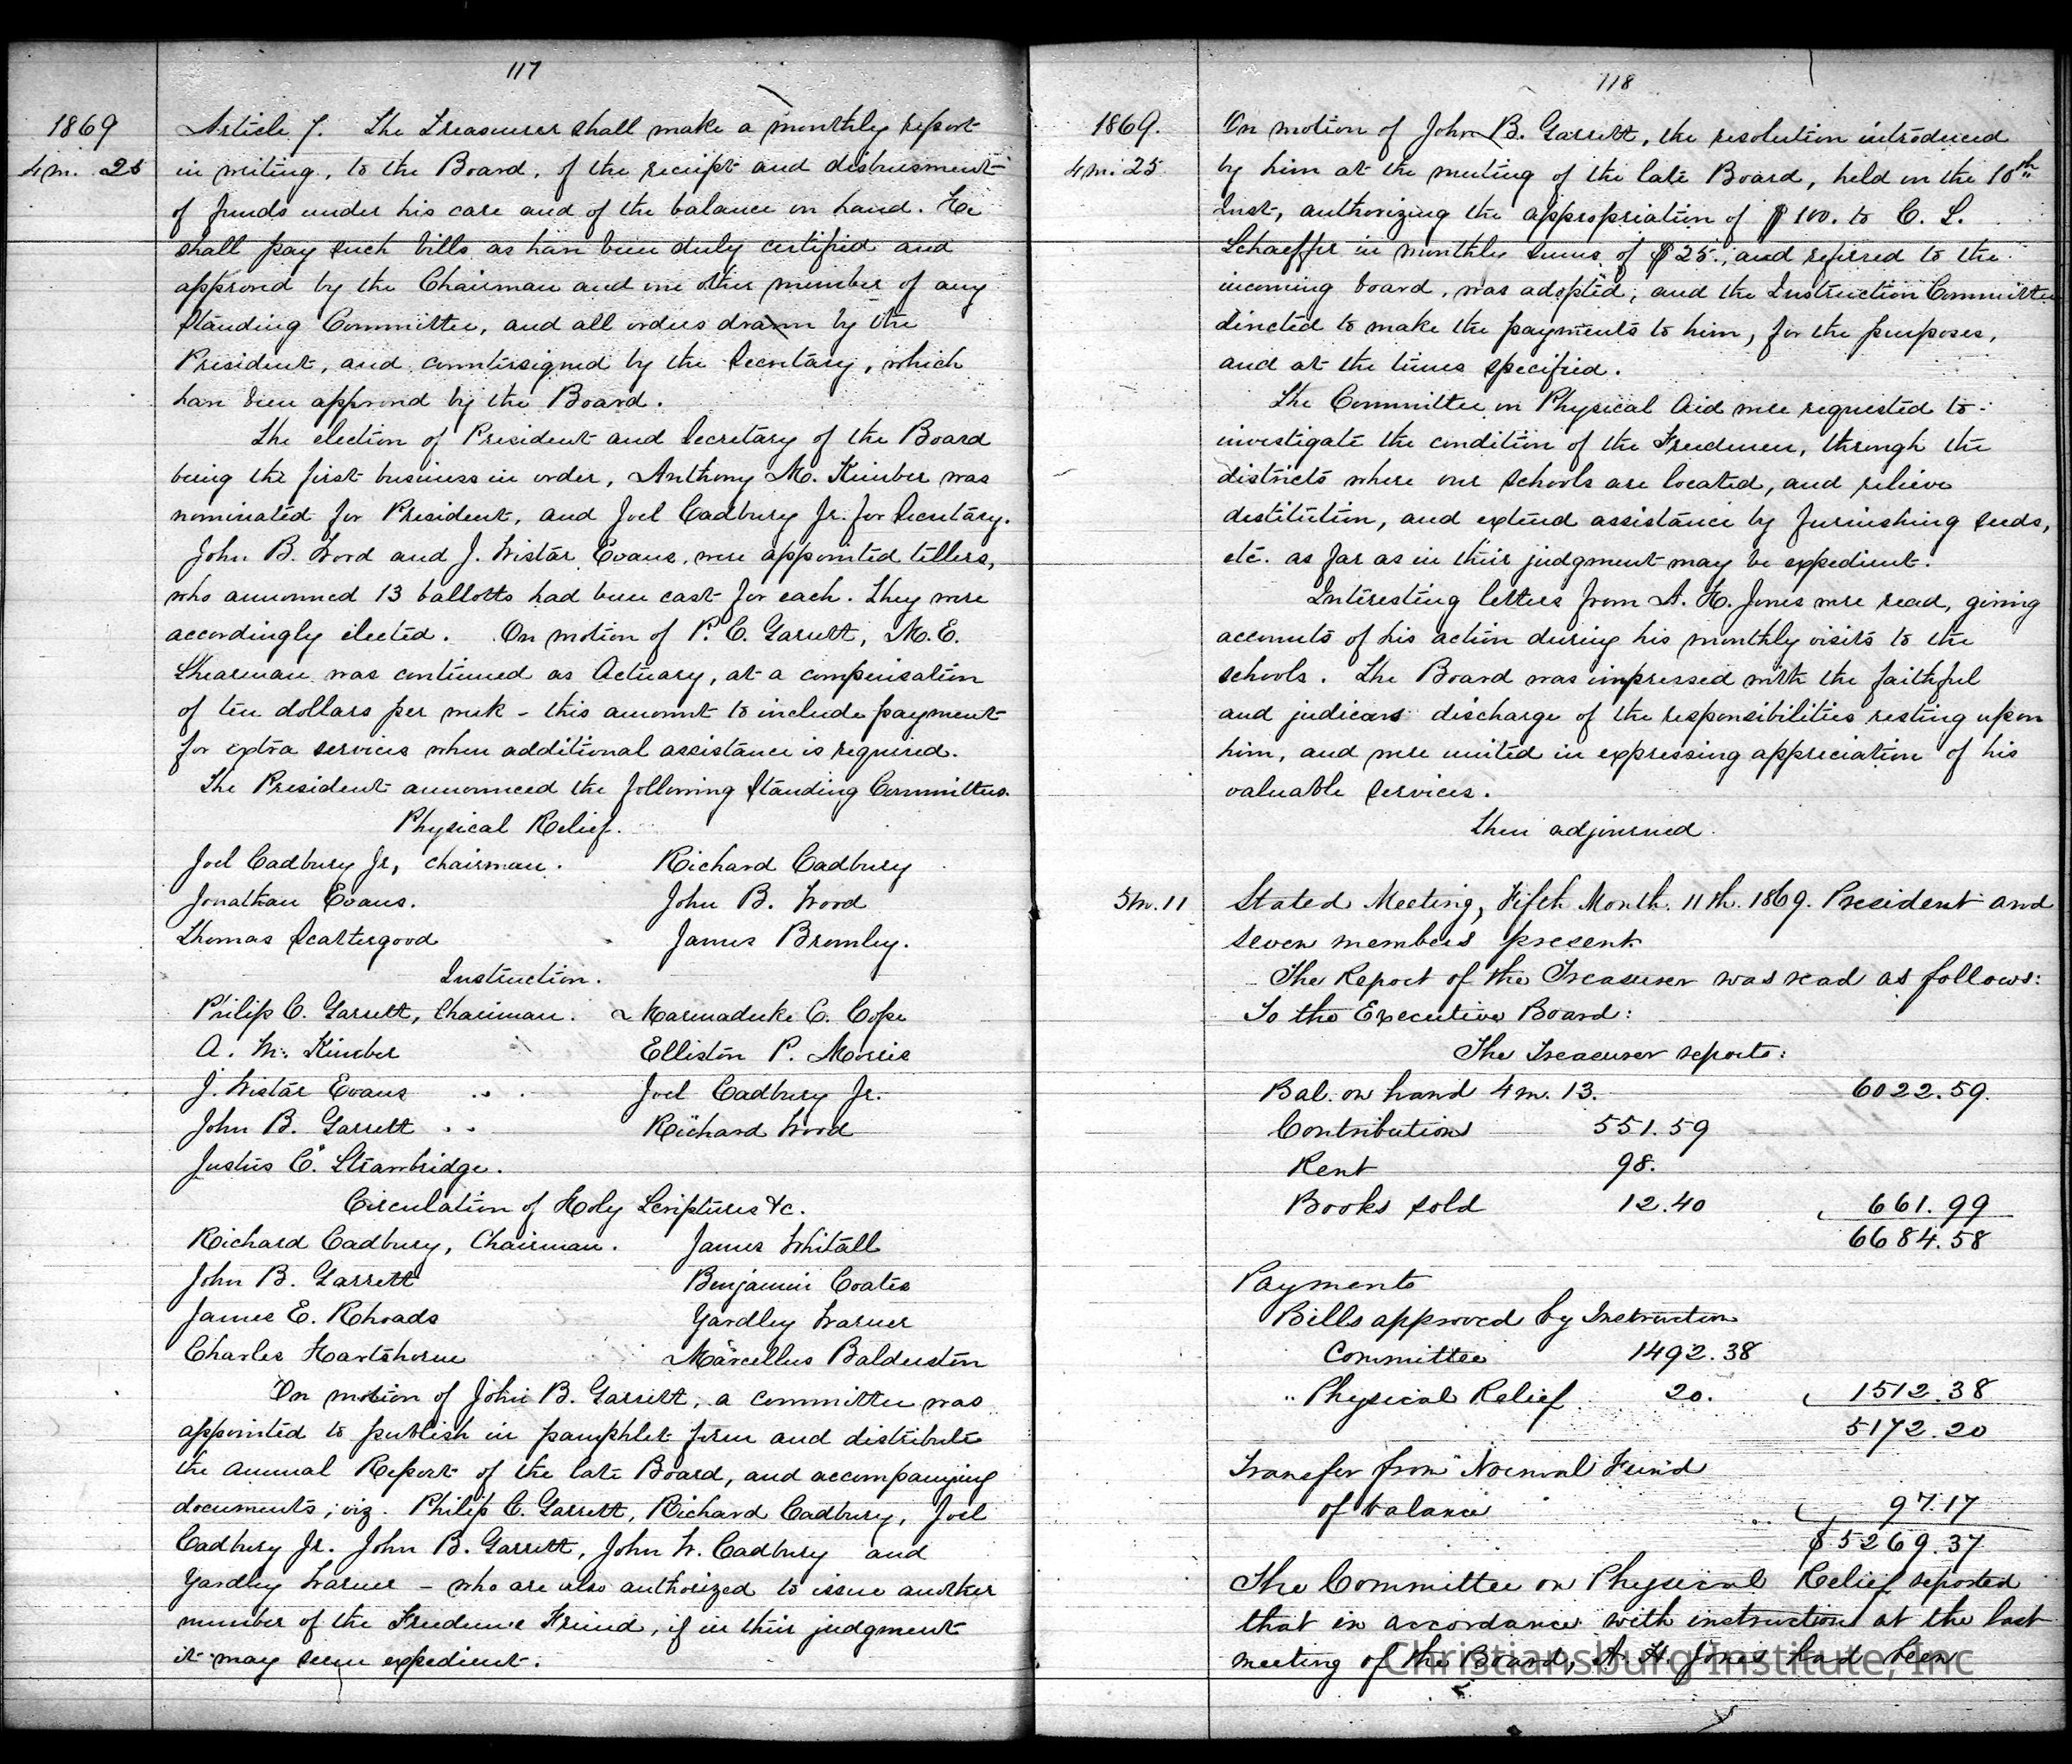 117
1869
4m. 25
Article 7. The Treasurer shall make a monthly report
in writing, to the Board, of the receipt and disbursment
of funds under his care and of the balance on hand. He
shall pay such bills as have been duly certified and
approved by the Chairman and one other member of any
Standing Committee, and all orders drawn by the
President, and countersigned by the Secretary, which
have been approved by the Board.
The election of President and Secretary of the Board
being the first business in order, Anthony M. Kimber was
nominated for President, and Joel Cadbury Jr. for Secretary.
John B. Wood and J. Wistar Evans, were appointed tellers,
who announced 13 ballotts had been cast for each. They were
accordingly elected. On motion of P. C. Garrett, M. E.
Shearman was continued as Actuary, at a compensation
of ten dollars per week - this amount to include payment
for extra services when additional assistance is required.
The President announced the following Standing Committees.
Physical Relief.
Joel Cadbury Jr, Chairman. Richard Cadbury
Jonathan Evans. John B. Wood
Thomas Scattergood James Bromley.
Instruction.
Philip C. Garrett, Chairman. Marmaduke C. Cope
A. M. Kimber Elliston P. Morris
J. Wistar Evans Joel Cadbury Jr.
John B. Garrett Richard Wood
Justus C. Strawbridge.
Circulation of Holy Scriptures &c.
Richard Cadbury, Chairman. James Whitall
John B. Garrett Benjamin Coates
James E. Rhoads Yardley Warner
Charles Hartshorne Marcellus Balderston
On motion of John B. Garrett, a committee was
appointed to publish in pamphlet form and distribute
the Annual Report of the late Board, and accompanying
documents, viz. Philip C. Garrett, Richard Cadbury, Joel
Cadbury Jr. John B. Garrett, John W. Cadbury and
Yardley Warner - who are also authorized to issue another
number of the Freedmen's Friend, if in their judgment
it may seem expedient.
118
1869.
4m. 25
On motion of John B. Garrett, the resolution introduced
by him at the meeting of the late Board, held on the 10th
Inst, authorizing the appropriation of $100. to C. S.
Schaeffer in monthly sums of $25., and referred to the
incoming board, was adopted, and the Instruction Committee
directed to make the payments to him, for the purposes,
and at the times specified.
The Committee on Physical Aid were requested to
investigate the condition of the Freedmen, through the
districts where our schools are located, and relieve
destitution, and extend assistance by furnishing seeds,
etc. as far as in their judgment may be expedient.
Interesting letters from A. H. Jones were read, giving
accounts of his action during his monthly visits to the
schools. The Board was impressed with the faithful
and judicious discharge of the responsibilities resting upon
him, and were united in expressing appreciation of his
valuable services.
Then adjourned.
5m. 11
Stated Meeting, Fifth Month. 11th. 1869. President and
seven members present
The Report of the Treasurer was read as follows:
To the Executive Board:
The Treasurer reports:
Bal. on hand 4m. 13. 6022.59.
Contributions 551.59
Rent 98.
Books sold 12.40 661.99
6684.58
Payments
Bills approved by Instruction
Committee 1492.38
" Physical Relief 20. 1512.38
5172.20
Transfer from "Normal Fund
of balance 97.17
$5269.37
The Committee on Physical Relief reported
that in accordance with instructions at the last
meeting of the Board, A. H. Jones had been
Christiansburg Institute, Inc